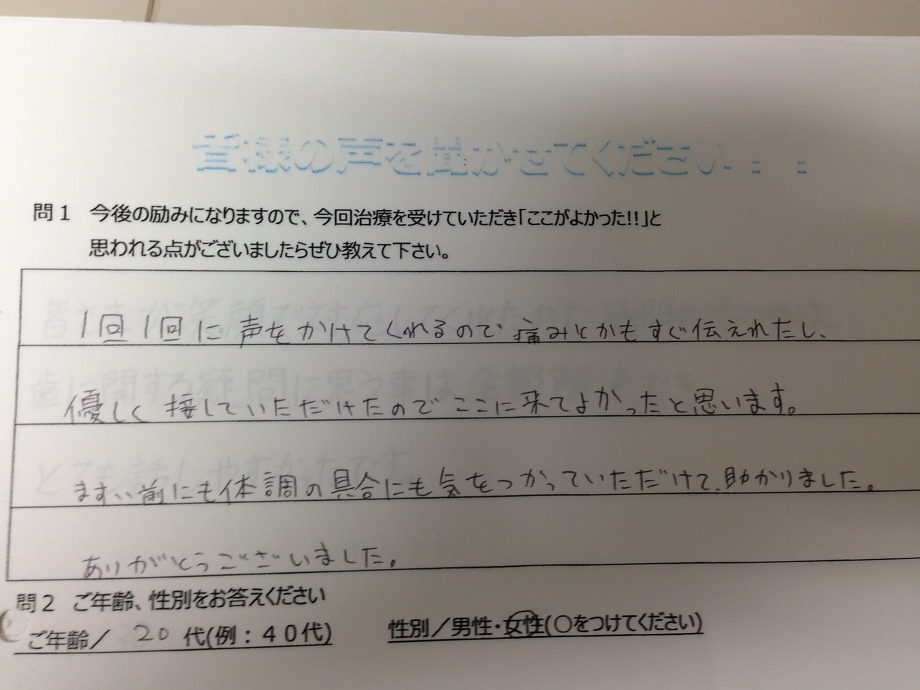 皆様の声を聞かせてください!!
問1 今後の励みになりますので、今回治療を受けていただき「ここがよかった!!」と
思われる点がございましたらぜひ教えて下さい。
1回1回に声をかけてくれるので痛みとかもすぐ伝えれたし、
優しく接していただけたのでここに来てよかったと思います。
ますい前にも体調の具合にも気をつかっていただけて、助かりました。
ありがとうございました。
問2 ご年齢、性別をお答えください
ご年齢/ 20 代(例:40代) 性別/男性・女性(〇をつけてください)